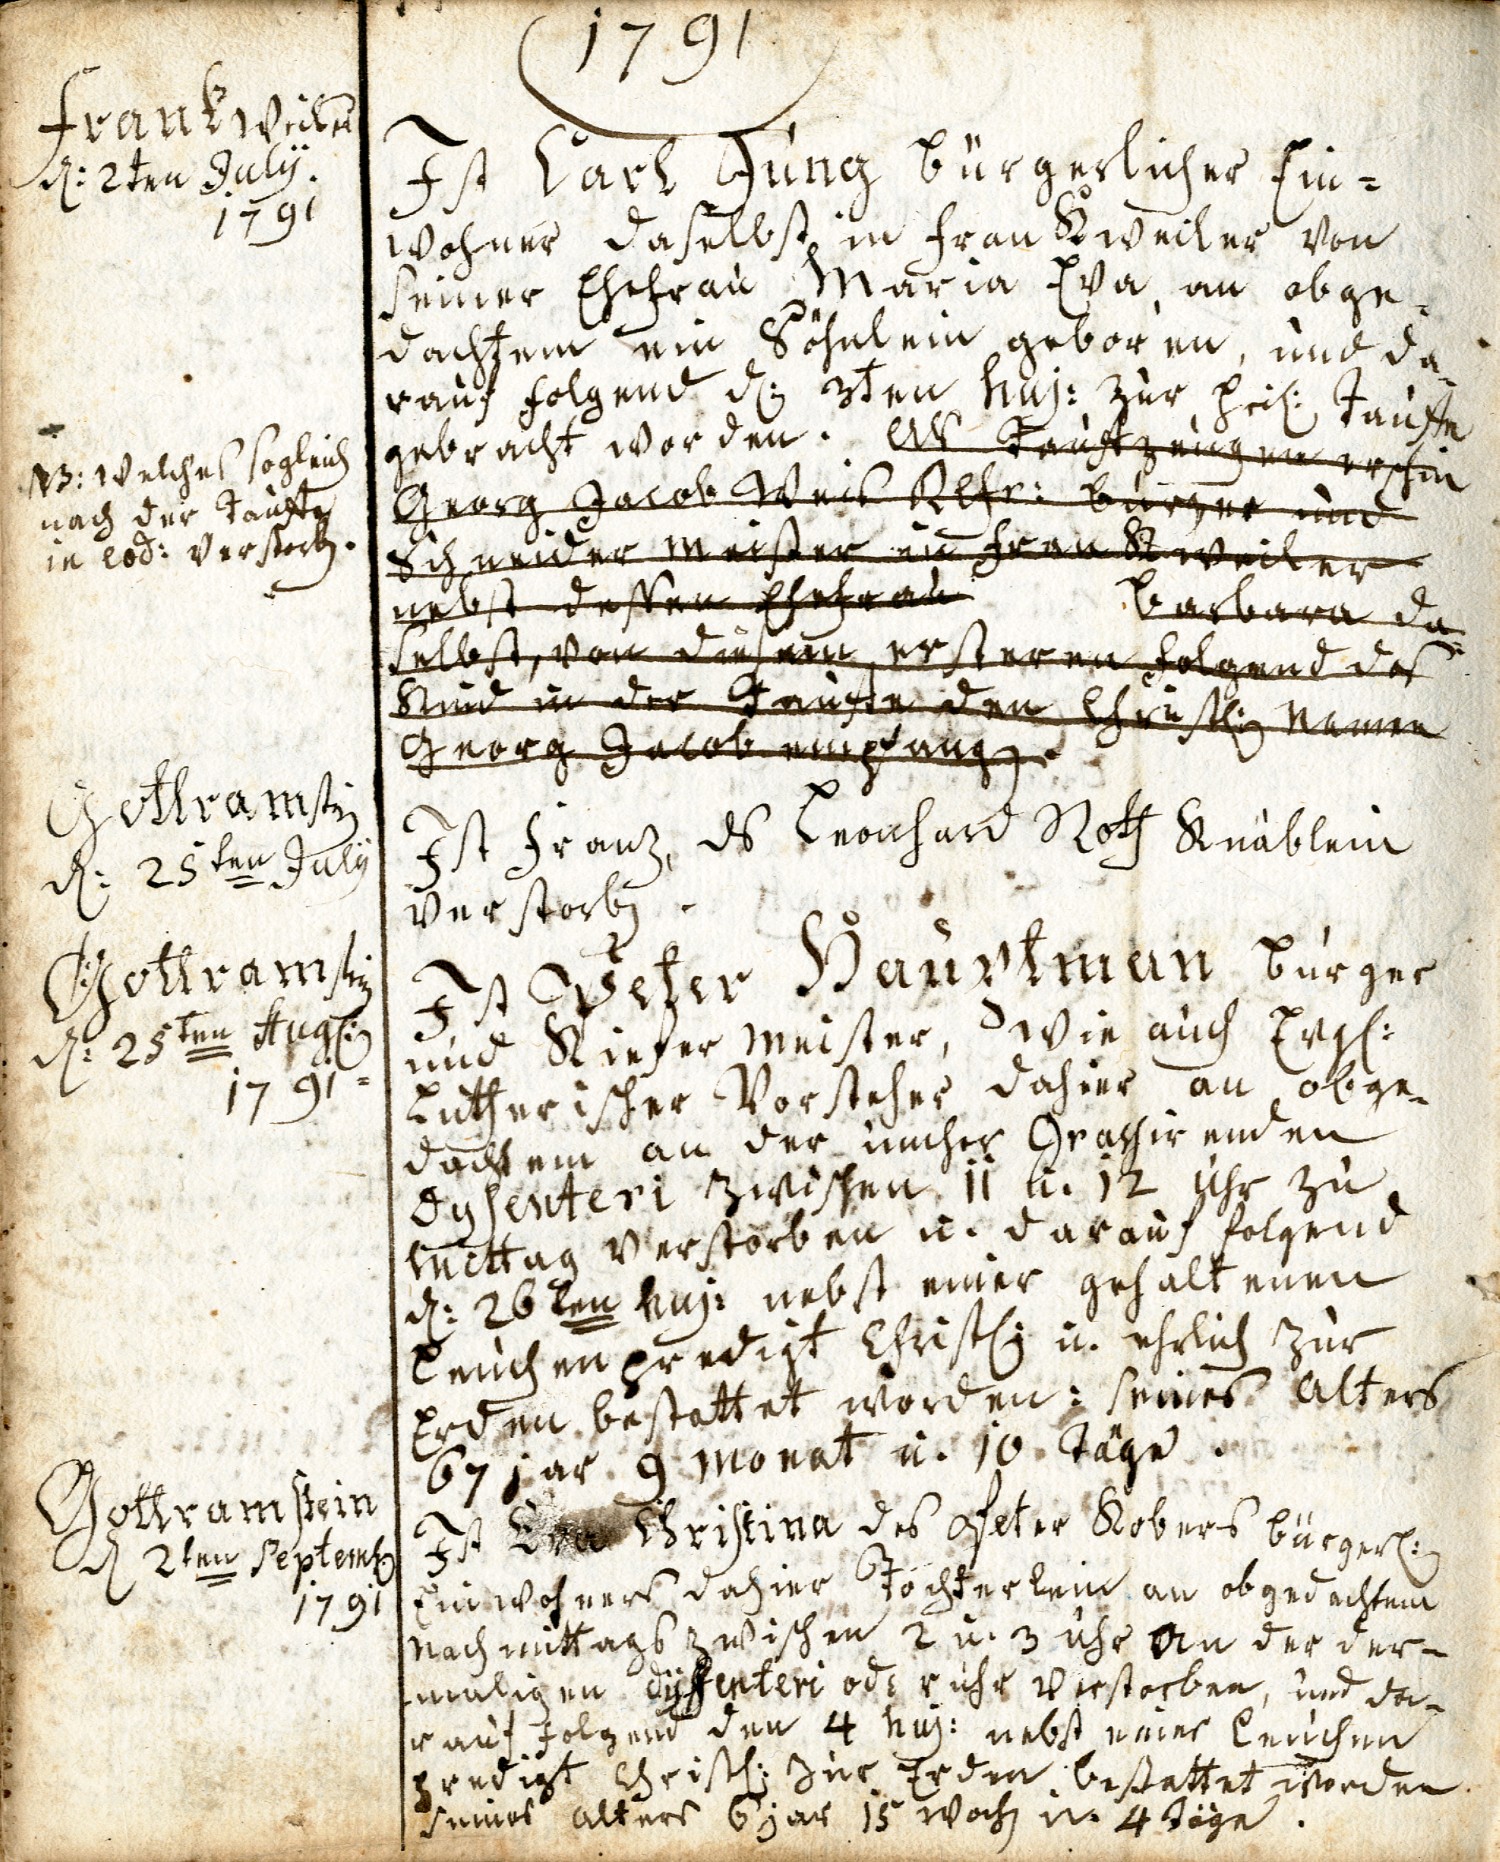 1791
Frankweiler
d: 2ten July.
1791
Ist Carl Jung bürgerlicher Ein=
wohner daselbst in Frankweiler von
seiner Ehefrau Maria Eva, an obge=
dachtem ein Söhnlein geboren, und da=
rauf folgend d: 3ten huj: zur heil: Tauffe
gebracht worden. Als Tauffzeugen erschin
Georg Jacob Weis Refr: bürger und
Schneider meister in Frankweiler
nebst dessen Ehefrau Barbara da=
selbst, von diesem ersteren folgend das
Kind in der Tauffe den Christl: Namen
Georg Jacob empfang.
NB: welches sogleich
nach der Tauffe
in eod: verstorb.
Gottramst
d: 25ten July
Ist Franz, ds Leonhard Roth Knäblein
verstorb.
Gottramst
d: 25ten Aug:
1791=
Ist Peter Hauptman bürger
und Kiefer meister, wie auch Evgl:
Lutherischer Vorsteher dahier an obge=
dachtem an der umher Grathirenden
dysenteri zwischen 11 u. 12 Uhr zu
Mittag verstorben u. darauf folgend
d: 26ten huj: nebst einer gehaltenen
Leuchenpredigt Christl: u. ehrlich zur
Erden bestattet worden: seines Alters
67 jar 9 monat u. 10 Täge.
Gottramstein
d 2ten Septemb
1791
Ist Eva Christina des Peter Kobers bürgerl:
Einwohners dahier Töchterlein an obgedachtem
Nachmittags zwischen 2 u. 3 Uhr an der der=
maligen dysenteri od: ruhr verstorben, und da=
rauf folgend den 4 huj: nebst einer Leuchen
predigt Christl: zur Erden bestattet worden
seines Alters 6 jar 15 woch u. 4 täge.